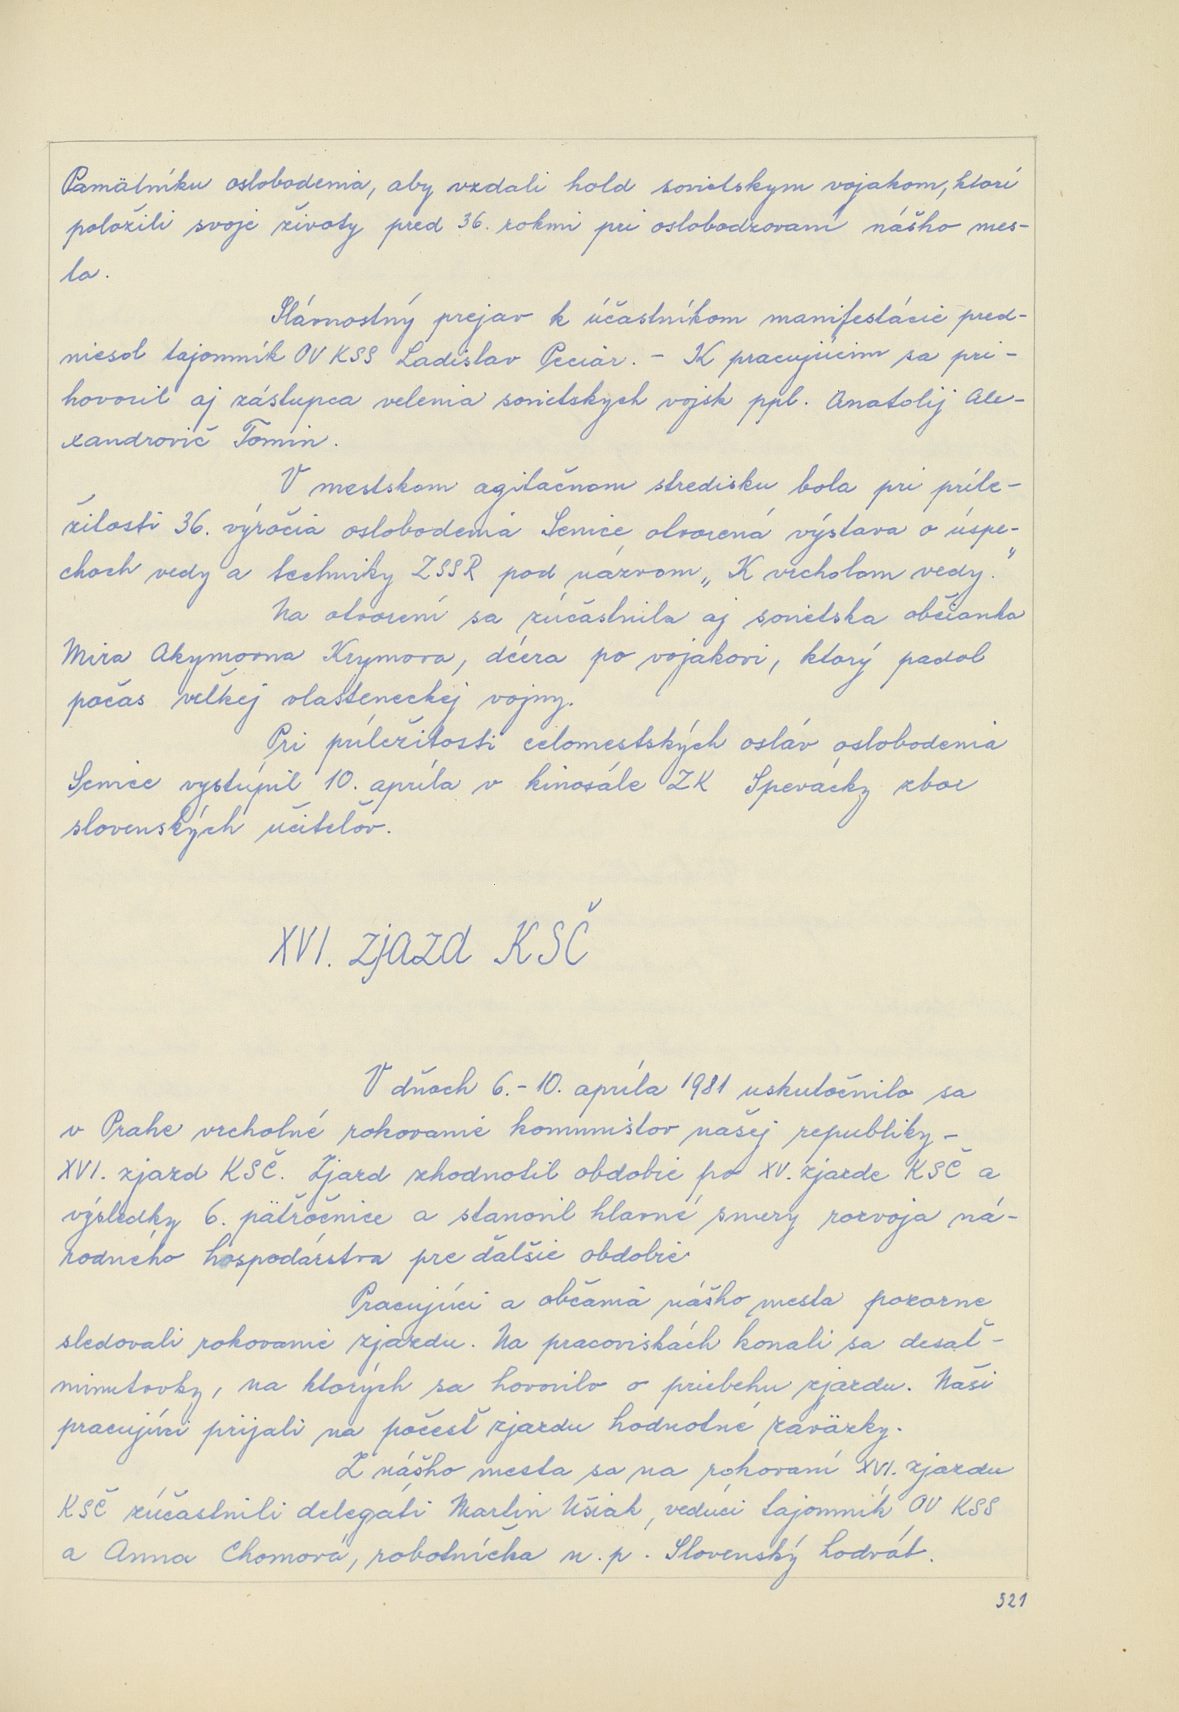 Pamätníku oslobodenia, aby vzdali hold sovietskym vojakom, ktorí
položili svoje životy pred 36. rokmi pri oslobodzovaní nášho mes-
ta.
Slávnostný prejav k účastníkom manifestácie pred-
niesol tajomník OV KSS Ladislav Peciár. - K pracujúcim sa pri-
hovoril aj zástupca velenia sovietskych vojsk ppl. Anatolij Ale-
xandrovič Tomin.
V mestskom agitačnom stredisku bola pri príle-
žitosti 36. výročia oslobodenia Senice otvorená výstava o úspe-
choch vedy a techniky ZSSR pod názvom „K vrcholom vedy."
Na otvorení sa zúčastnila aj sovietska občianka
Mira Akymovna Krymova, dcéra po vojakovi, ktorý padol
počas veľkej vlasteneckej vojny.
Pri príležitosti celomestských osláv oslobodenia
Senice vystúpil 10. apríla v kinosále ZK Spevácky zbor
slovenských učiteľov.
XVI. zjazd KSČ
V dňoch 6.-10. apríla 1981 uskutočnilo sa
v Prahe vrcholné rokovanie komunistov našej republiky -
XVI. zjazd KSČ. Zjazd zhodnotil obdobie po XV. zjazde KSČ a
výsledky 6. päťročnice a stanovil hlavné smery rozvoja ná-
rodného hospodárstva pre ďalšie obdobie
Pracujúci a občania nášho mesta pozorne
sledovali rokovanie zjazdu. Na pracoviskách konali sa desať-
minútovky, na ktorých sa hovorilo o priebehu zjazdu. Naši
pracujúci prijali na počesť zjazdu hodnotné záväzky.
Z nášho mesta sa na rokovaní XVI. zjazdu
KSČ zúčastnili delegáti Martin Ušiak, vedúci tajomník OV KSS
a Anna Chomová, robotníčka n. p. Slovenský hodváb.
321